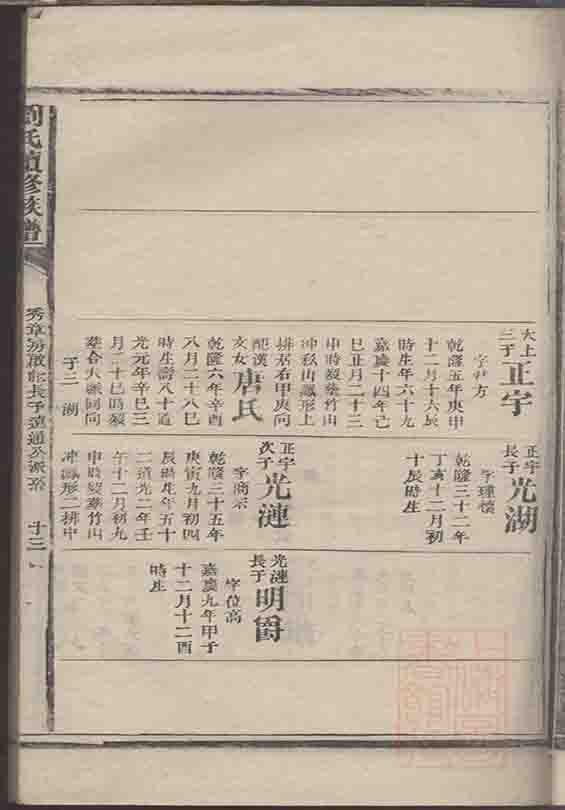 大上三子
正宇
字尹方
乾隆五年庚甲
十二月十六辰
時生年六十九
嘉慶十四年己
巳正月二十三
申時歿塟竹山
冲杉山鳳形上
排居右甲庚向
配漢文女
唐氏
乾隆六年辛酉
八月二十八巳
時生壽八十道
光元年辛巳三
月二十巳時歿
塟合夫脉同向
子三 湖
正宇長子
光湖
字瑾懷
乾隆三十二年
丁亥十二月初
十辰時生
正宇次子
光漣
字商示
乾隆三十五年
庚寅九月初四
辰時生年五十
二道光二年壬
午十二月初九
申時歿塟竹山
冲鳳形二排中
光漣長子
明爵
字位高
嘉慶九年甲子
十二月十二酉
時生
劉氏續修族譜
秀章房啟能長子遠通公派系
十三